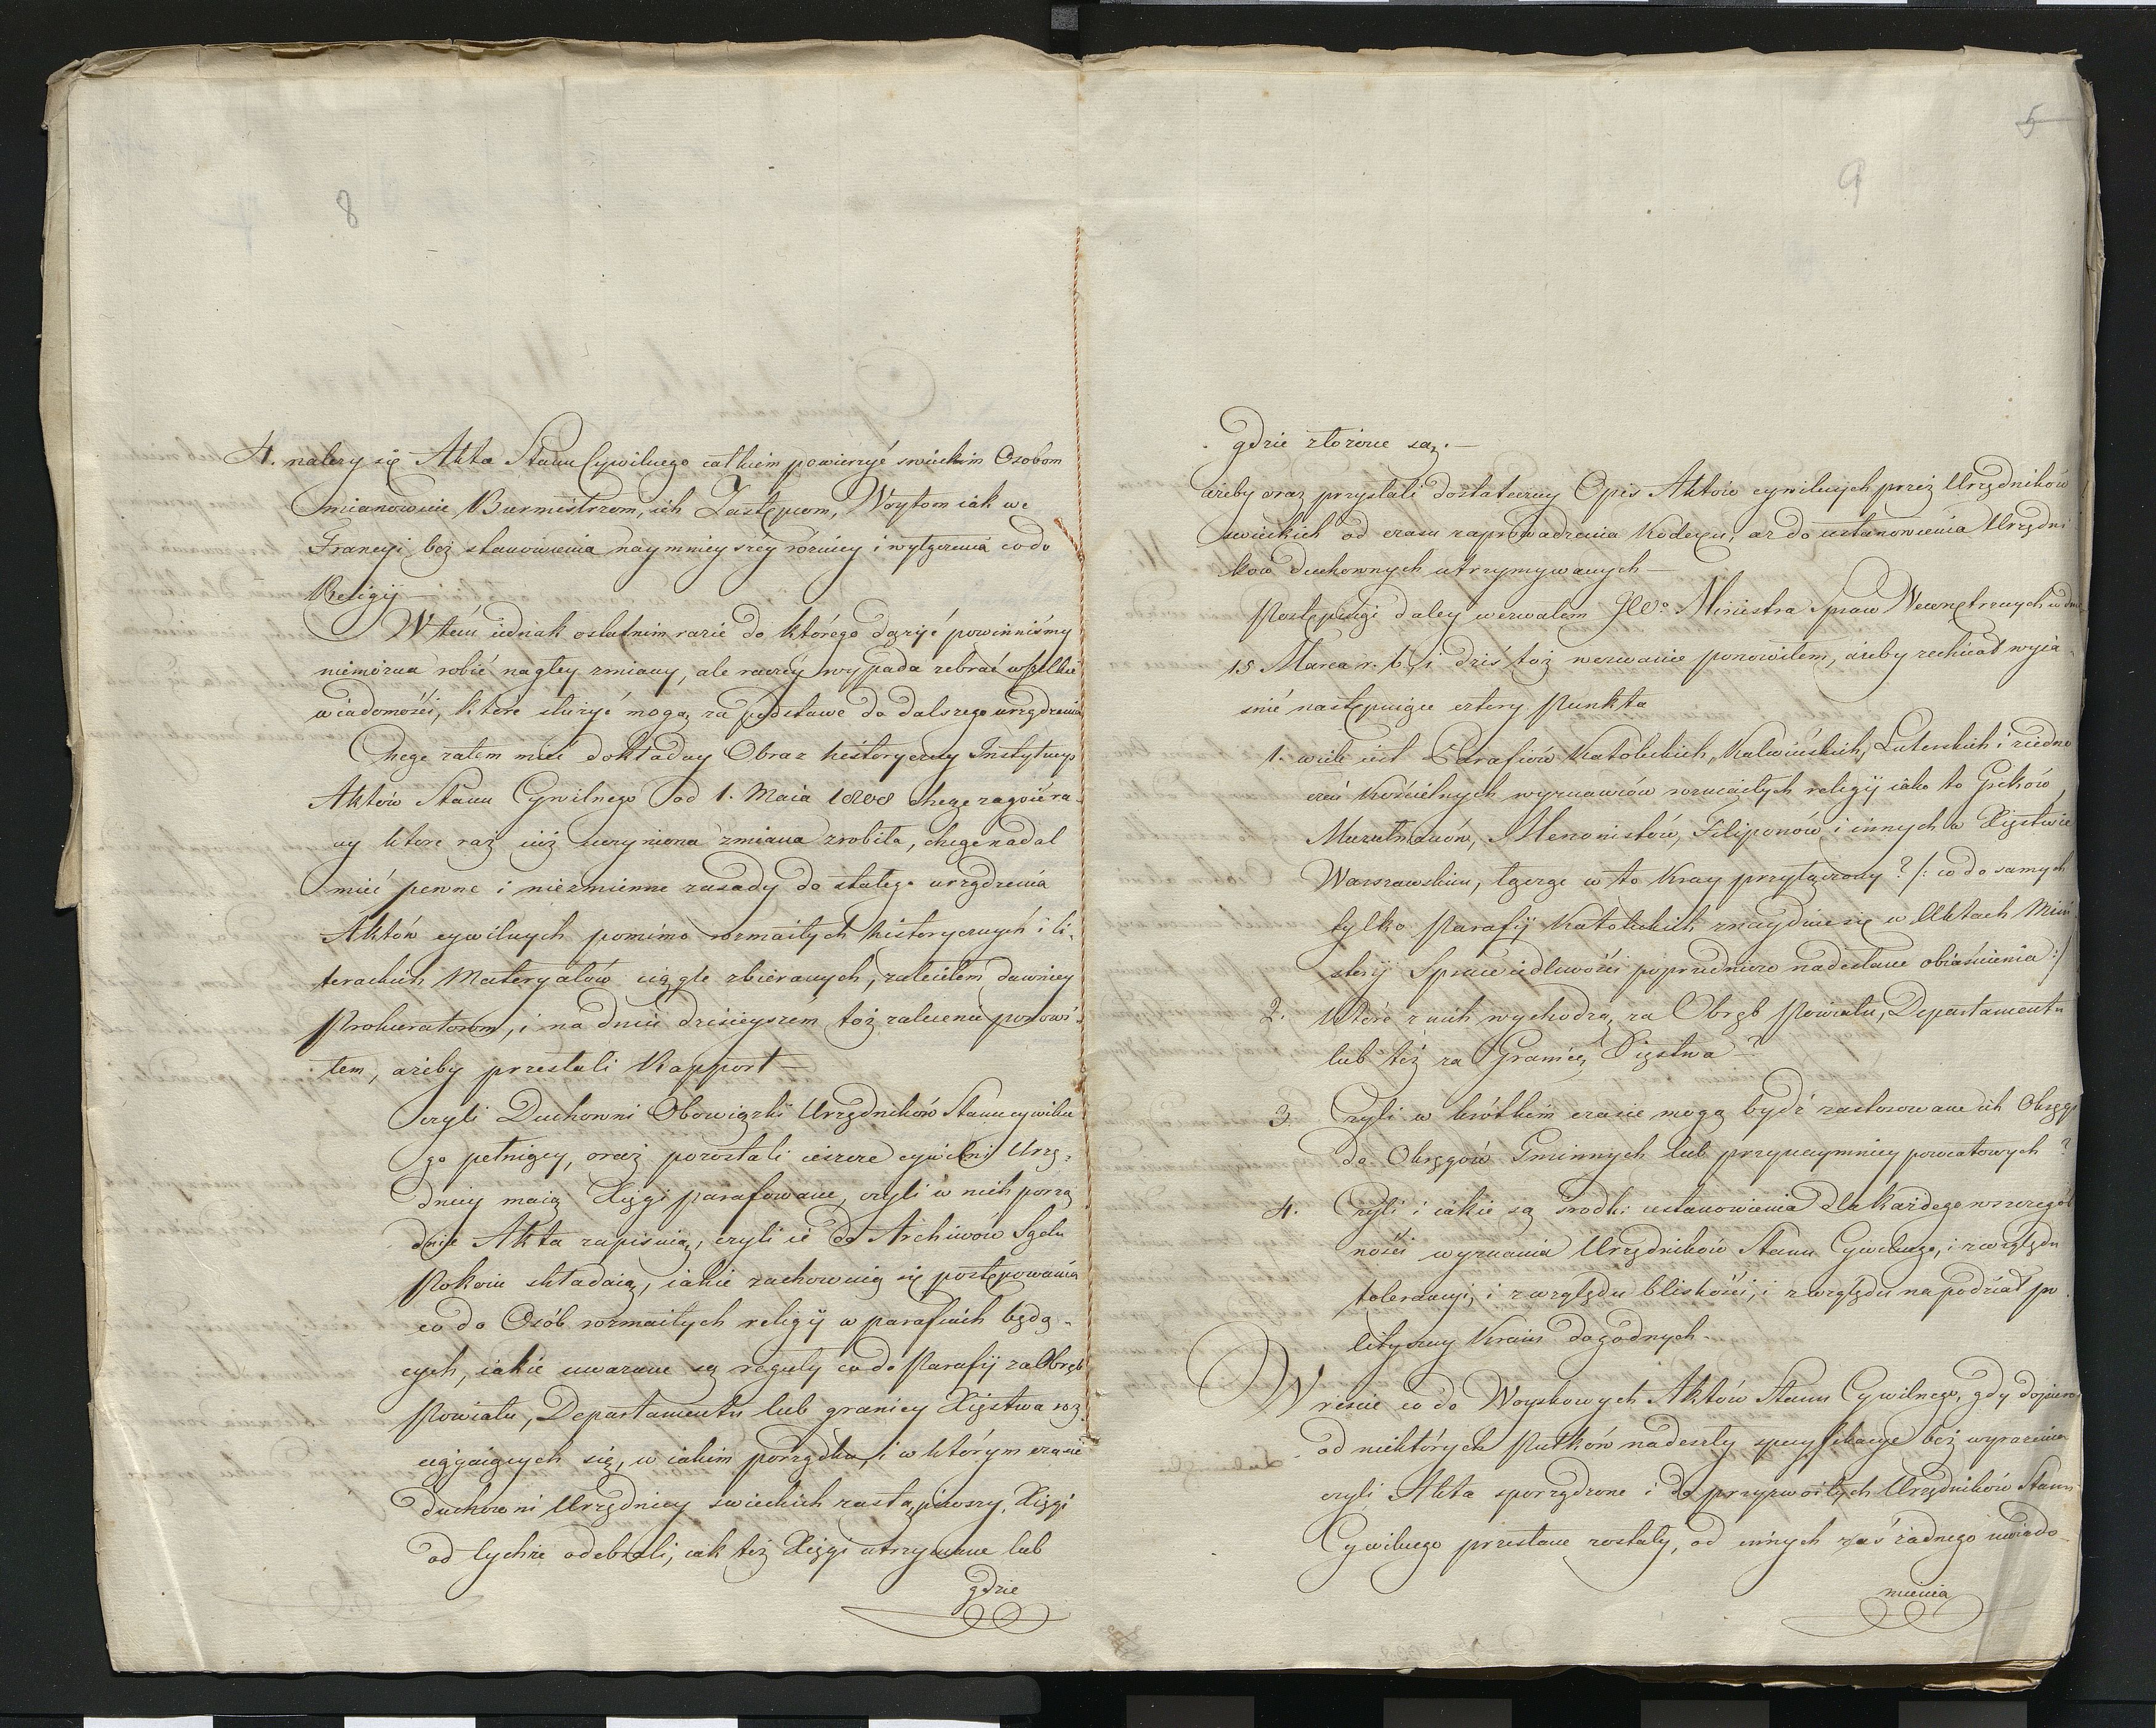 8
4. należy się Akta Stanu Cywilnego całkiem powierzyć swieckim Osobom
mianowicie Burmistrzom, ich Zastępcom, Woytom iak we
Francyi, bez stanowienia naymnieyszéy rożnicy i wyłączenia co do
Religij —
W tém iednak ostatnim razie do którego dążyć powinniśmy
niemożna robić nagłey zmiany, ale raczéy wypada zebrać wszelkie
wiadomości, które służyć mogą za podstawę do dalszego urządzenia
Chcąc zatem mieć dokładny Obraz historyczny Instytucyi
Aktów Stanu Cywilnego od 1. Maia 1808 chcąc zagoić ra-
ny które raz iuż uczyniona zmiana zrobiła, chcąc nadal
mieć pewne i niezmienne zasady do stałego urządzenia
Aktów cywilnych pomimo rozmaitych historycznych i li-
terackich Materyałów ciągle zbieranych, zaleciłem dawniey
Prokuratorom, i na dniu dzisieyszem toż zalecenie ponowi-
łem, ażeby przesłali Rapport —
czyli Duchowni Obowiązki Urzędników Stanu cywilne
go pełniący, oraz pozostali ieszcze cywilni Urzę-
dnicy maią Xięgi parafowane, czyli w nich porzą
dnie Akta zapisuią, czyli ie do Archiwów Sądu
Pokoiu składaią, iakie zachowuią się postępowania
co do Osób rozmaitych religij w parafiach będą-
cych, iakie uważane są reguły co do Parafij za Obręb
Powiatu, Departamentu lub granicy Xięstwa roz
ciągaiących się, w iakim porządku, i w którym czasie
duchowni Urzędnicy swieckich zastąpiwszy, Xięgi
od tychże odebrali, iak też Xięgi utrzymane lub
gdzie
5
9
gdzie złożone są. —
ażeby oraz przysłali dostateczny Opis Aktów cywilnych przez Urzędników
swieckich od czasu zaprowadzenia Kodexu, aż do ustanowienia Urzędni
ków duchownych utrzymywanych —
Postępuiąc daley wezwałem JWo Ministra Spraw Wewnętrznych w dniu
15 Marca r. b. i dziś toż wezwanie ponowiłem, ażeby zechciał wyia-
snić następuiące cztery Punkta
1. wiele iest Parafiów Katolickich, Kalwińskich, Luterskich i ziedno
czeń Kościelnych wyznawców rozmaitych religij iako to Greków,
Muzułmanów, Menonistów, Filiponów i innych w Xięstwie
Warszawskim, łącząc w to Kray przyłączony? /: co do samych
tylko Parafij Katolickich znayduie się w Aktach Mini
steryi Sprawiedliwości poprzedniczo nadesłane obiaśnienia :/
2. które z nich wychodzą za Obręb Powiatu, Departamentu
lub też za Granicę Xięstwa —?
3. Czyli w krótkim czasie mogą bydź zastosowane ich Obręgi
do Obręgów Gminnych lub przynaymniey powiatowych?
4. Czyli i iakie są srodki ustanowienia dla każdego wszczegól
ności wyznania Urzędników Stanu Cywilnego, i z względu
tolerancyi, i z względu bliskości, i z względu na podział po-
lityczny Kraiu dogodnych. —
W reście co do Woyskowych Aktów Stanu Cywilnego, gdy dopiero
od niektórych Pułków nadeszły specyfikacye bez wyrażenia
czyli Akta sporządzone i do przyzwoitych Urzędników Stanu
Cywilnego przesłane zostały, od innych zaś żadnego uwiado-
mienia